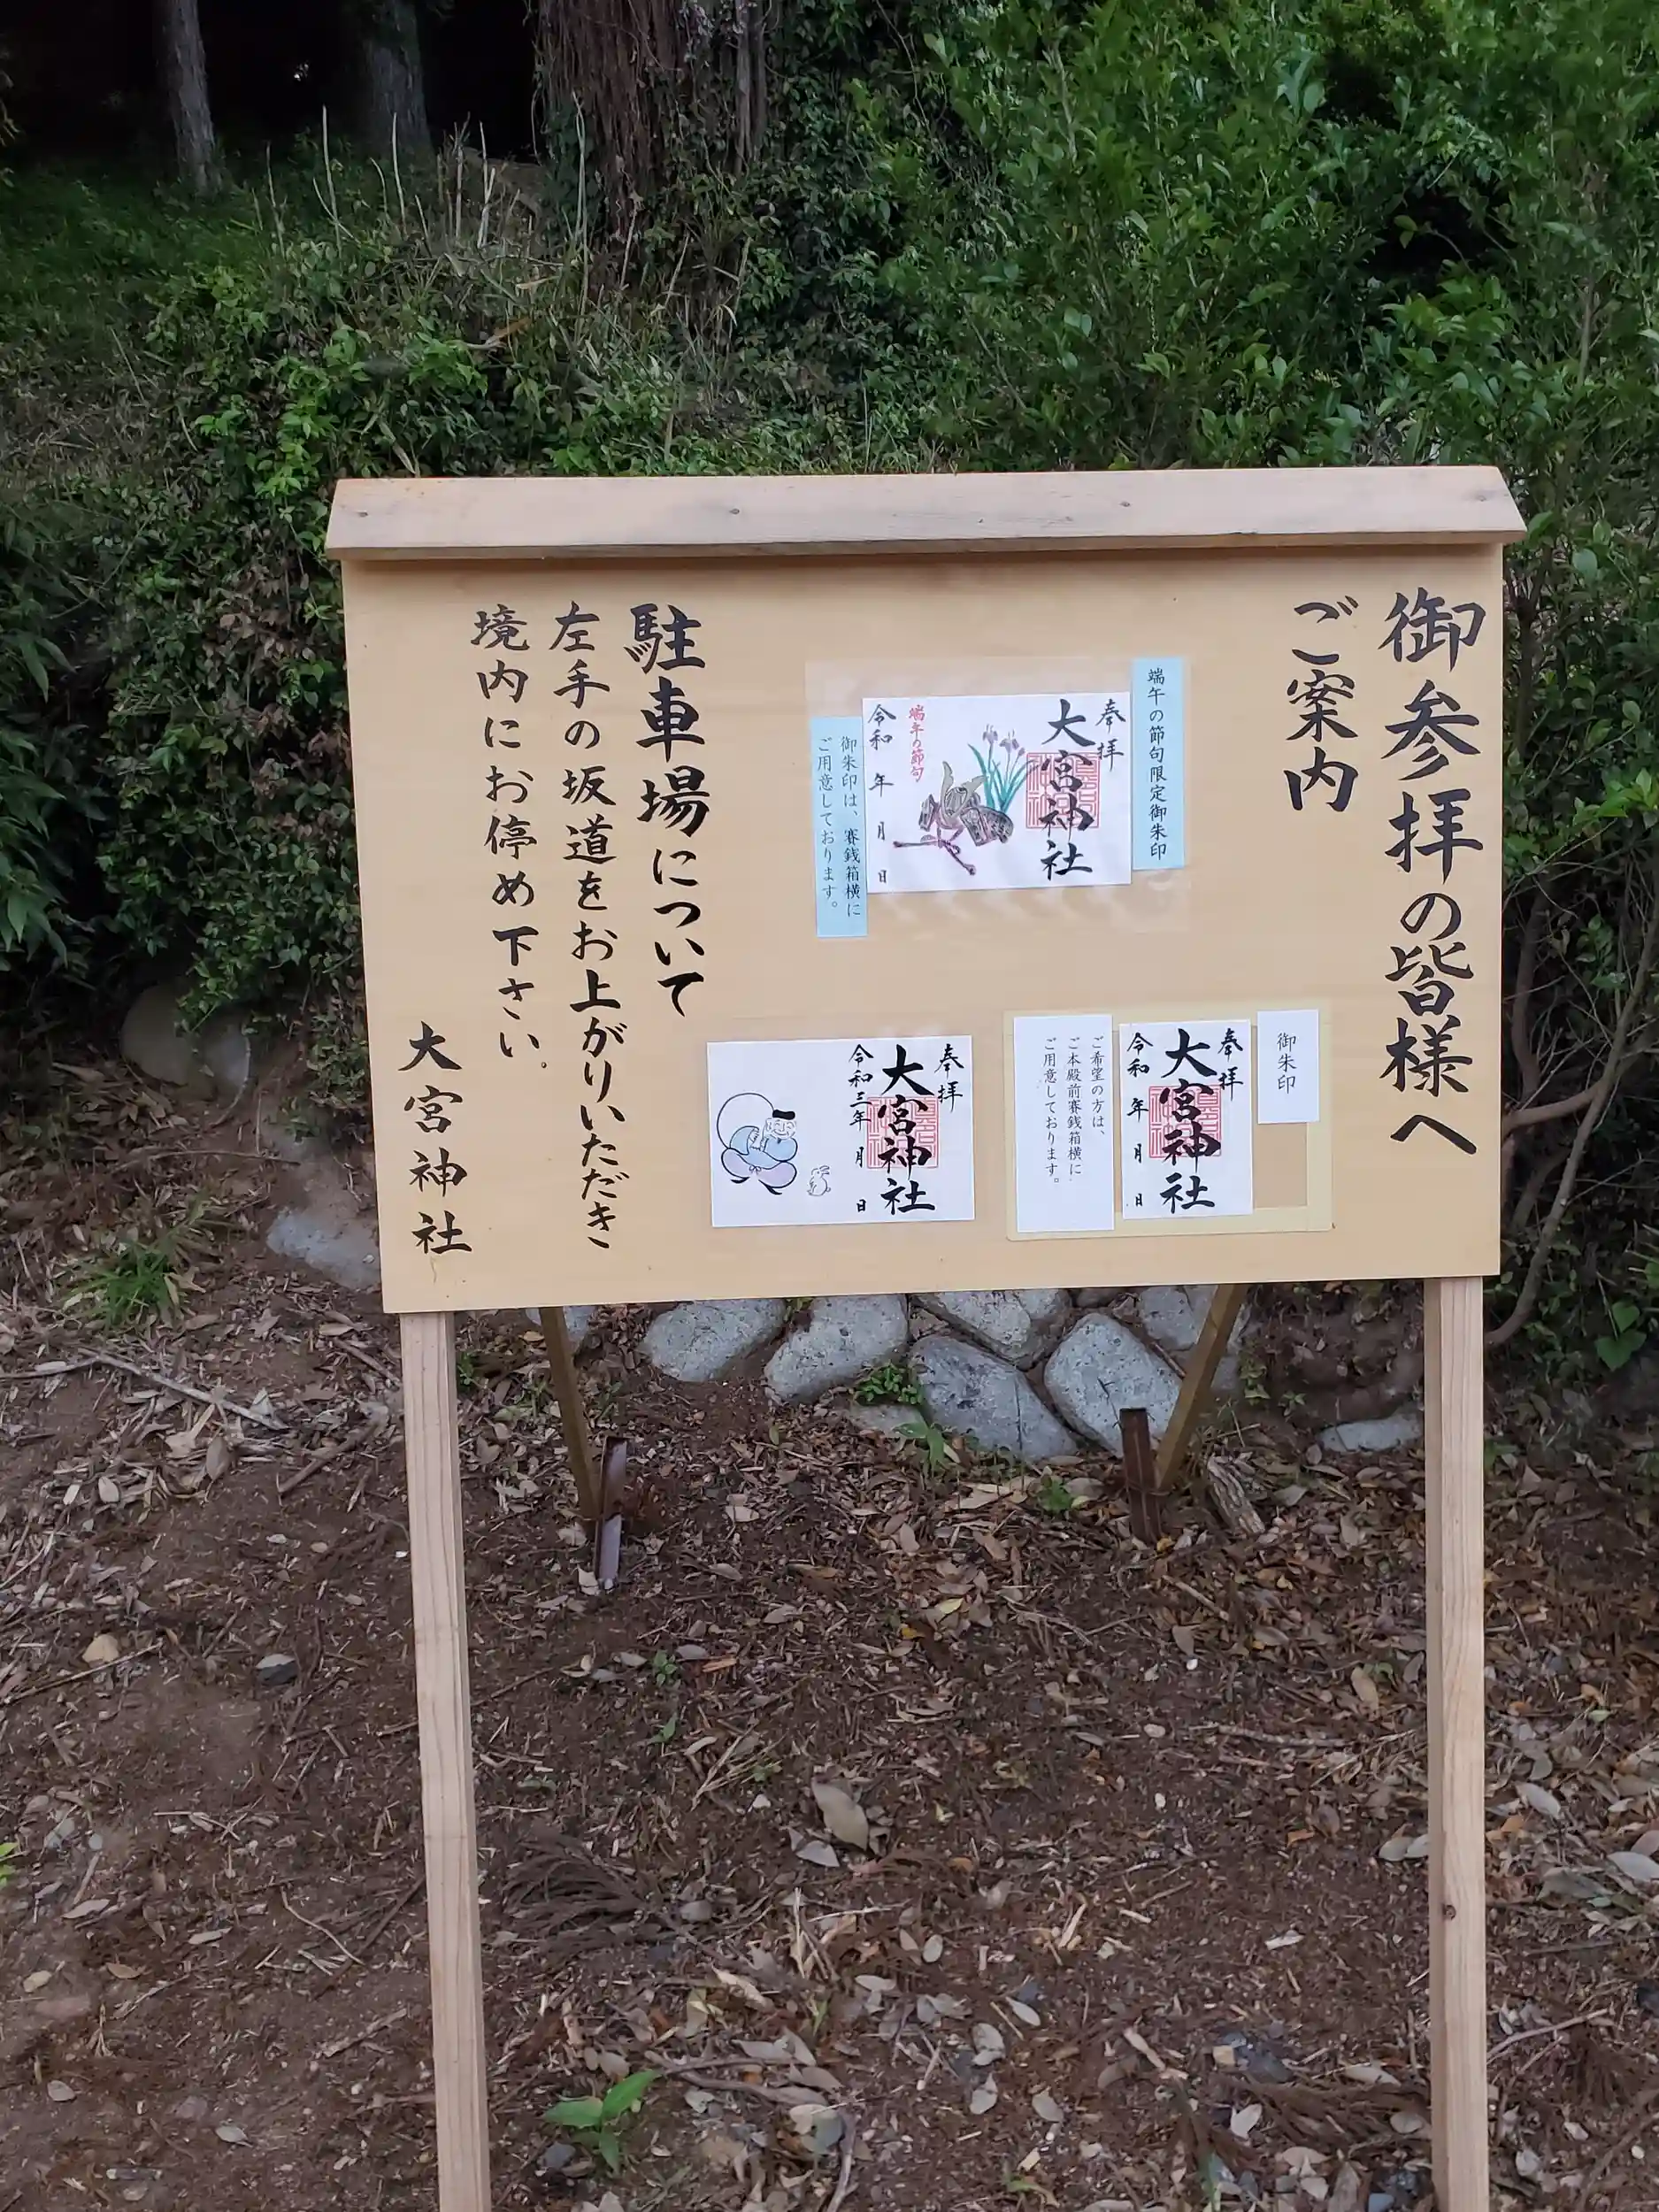 御参拝の皆様へ
ご案内
端午の節句限定御朱印
奉拝
大宮神社
端午の節句
令和 年 月 日
御朱印は、賽銭箱横に
ご用意しております。
御朱印
奉拝
大宮神社
令和 年 月 日
ご希望の方は、
ご本殿前賽銭箱横に
ご用意しております。
奉拝
大宮神社
令和三年 月 日
駐車場について
左手の坂道をお上がりいただき
境内にお停め下さい。
大宮神社